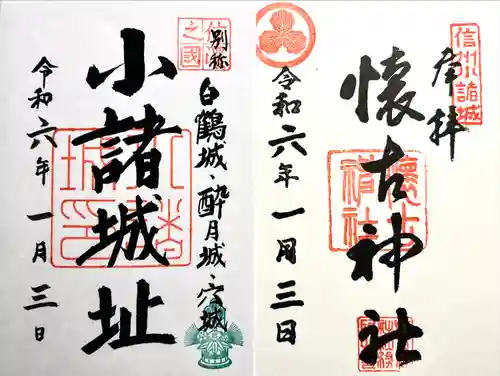 奉拝
信州小諸城
懐古神社
令和六年一月三日
別称
白鶴城・酔月城・穴城
小諸城址
令和六年一月三日